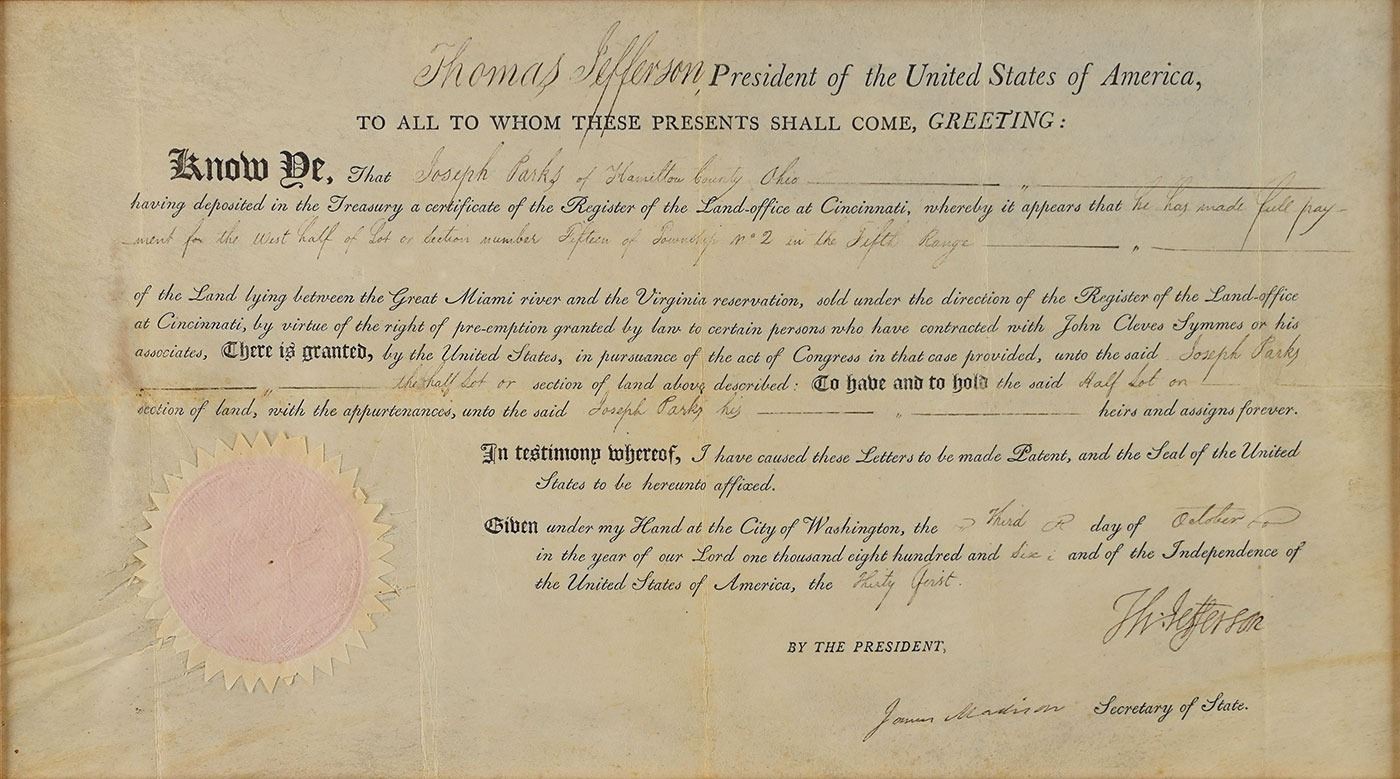 Thomas Jefferson, President of the United States of America,
TO ALL TO WHOM THESE PRESENTS SHALL COME, GREETING:
Know Ye, That Joseph Parks of Hamilton County Ohio
having deposited in the Treasury a certificate of the Register of the Land-office at Cincinnati, whereby it appears that he has made full pay-
ment for the West half of Lot or Section number Fifteen of Township No 2 in the Fifth Range
of the Land lying between the Great Miami river and the Virginia reservation, sold under the direction of the Register of the Land-office
at Cincinnati, by virtue of the right of pre-emption granted by law to certain persons who have contracted with John Cleves Symmes or his
associates, There is granted, by the United States, in pursuance of the act of Congress in that case provided, unto the said Joseph Parks
the half Lot or section of land above described: To have and to hold the said Half Lot or
section of land, with the appurtenances, unto the said Joseph Parks his heirs and assigns forever.
In testimony whereof, I have caused these Letters to be made Patent, and the Seal of the United
States to be hereunto affixed.
Given under my Hand at the City of Washington, the Third day of October
in the year of our Lord one thousand eight hundred and Six; and of the Independence of
the United States of America, the Thirty first.
Th: Jefferson
BY THE PRESIDENT,
James Madison Secretary of State.